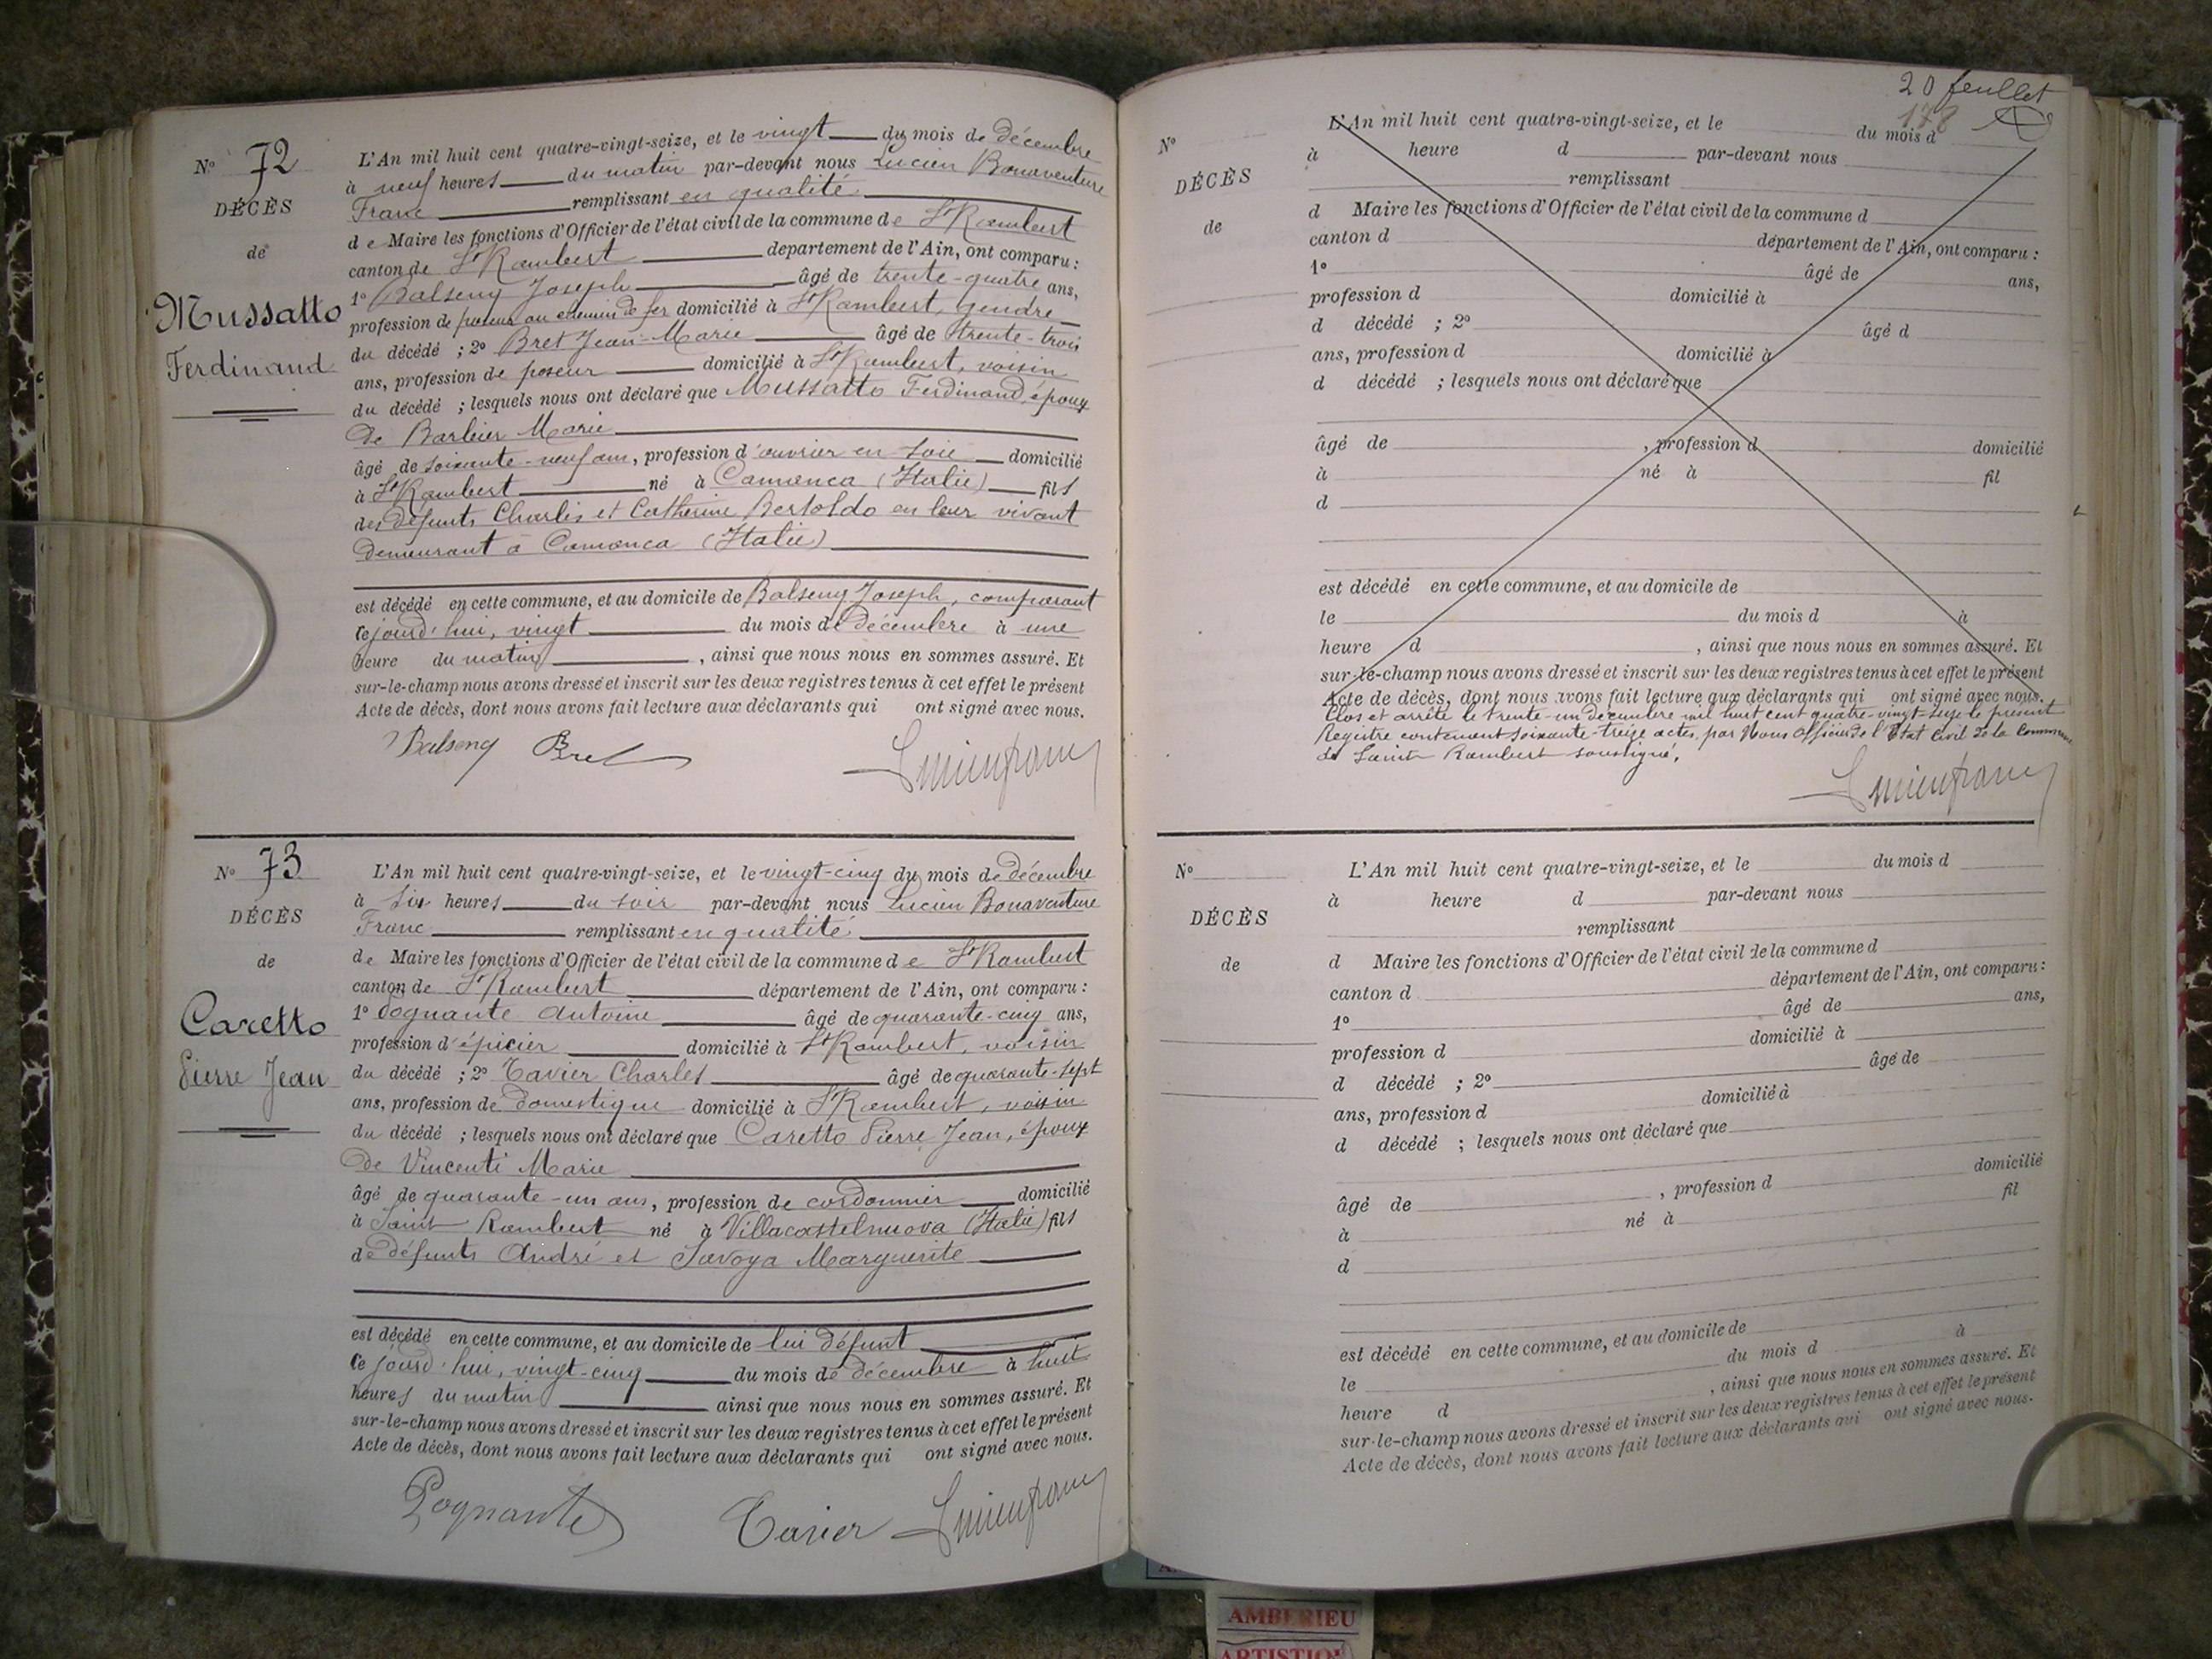 N° 72
DÉCÈS
de
Mussatto
Ferdinand
L'An mil huit cent quatre-vingt-seize, et le vingt du mois de décembre
à neuf heures du matin par-devant nous Lucien Bonaventure
Franc remplissant en qualité
de Maire les fonctions d'Officier de l'état civil de la commune de St Rambert
canton de St Rambert département de l'Ain, ont comparu :
1° Balseny Joseph âgé de trente-quatre ans,
profession de poseur au chemin de fer domicilié à St Rambert, gendre
du décédé ; 2° Bret Jean-Marie âgé de trente-trois
ans, profession de poseur domicilié à St Rambert, voisin
du décédé ; lesquels nous ont déclaré que Mussatto Ferdinand, époux
de Barbier Marie
âgé de soixante-neuf ans, profession d'ouvrier en soie domicilié
à St Rambert né à Camanca (Italie) fils
des défunts Charles et Catherine Bertoldo en leur vivant
demeurant à Camanca (Italie)
est décédé en cette commune, et au domicile de Balseny Joseph, comparant
cejourd'hui, vingt du mois de décembre à une
heure du matin, ainsi que nous nous en sommes assuré. Et
sur-le-champ nous avons dressé et inscrit sur les deux registres tenus à cet effet le présent
Acte de décès, dont nous avons fait lecture aux déclarants qui ont signé avec nous.
Balseny Bret Lucien franc
N° 73
DÉCÈS
de
Caretto
Pierre Jean
L'An mil huit cent quatre-vingt-seize, et le vingt-cinq du mois de décembre
à six heures du soir par-devant nous Lucien Bonaventure
Franc remplissant en qualité
de Maire les fonctions d'Officier de l'état civil de la commune de St Rambert
canton de St Rambert département de l'Ain, ont comparu :
1° Pognante Antoine âgé de quarante-cinq ans,
profession d'épicier domicilié à St Rambert, voisin
du décédé ; 2° Tavier Charles âgé de quarante-sept
ans, profession de domestique domicilié à St Rambert, voisin
du décédé ; lesquels nous ont déclaré que Caretto Pierre Jean, époux
de Vincenti Marie
âgé de quarante-un ans, profession de cordonnier domicilié
à Saint Rambert né à Villacastelnuova (Italie) fils
de défunts André et Savoya Marguerite
est décédé en cette commune, et au domicile de lui défunt
cejourd'hui, vingt-cinq du mois de décembre à huit
heures du matin ainsi que nous nous en sommes assuré. Et
sur-le-champ nous avons dressé et inscrit sur les deux registres tenus à cet effet le présent
Acte de décès, dont nous avons fait lecture aux déclarants qui ont signé avec nous.
Pognante Tavier Lucien franc
20 feuillet
178
N°
DÉCÈS
de
L'An mil huit cent quatre-vingt-seize, et le du mois d
à heure d par-devant nous
remplissant
d Maire les fonctions d'Officier de l'état civil de la commune d
canton d département de l'Ain, ont comparu :
1° âgé de ans,
profession d domicilié à
d décédé ; 2° âgé d
ans, profession d domicilié à
d décédé ; lesquels nous ont déclaré que
âgé de , profession d domicilié
à né à fil
d
est décédé en cette commune, et au domicile de
le du mois d à
heure d , ainsi que nous nous en sommes assuré. Et
sur-le-champ nous avons dressé et inscrit sur les deux registres tenus à cet effet le présent
Acte de décès, dont nous avons fait lecture aux déclarants qui ont signé avec nous.
Clos et arrêté le trente-un décembre mil huit cent quatre-vingt-seize le présent
Registre contenant soixante-treize actes, par Nous Officier de l'Etat Civil de la Commune
de Saint Rambert soussigné.
Lucien franc
N°
DÉCÈS
de
L'An mil huit cent quatre-vingt-seize, et le du mois d
à heure d par-devant nous
remplissant
d Maire les fonctions d'Officier de l'état civil de la commune d
canton d département de l'Ain, ont comparu :
1° âgé de ans,
profession d domicilié à
d décédé ; 2° âgé de
ans, profession d domicilié à
d décédé ; lesquels nous ont déclaré que
âgé de , profession d domicilié
à né à fil
d
est décédé en cette commune, et au domicile de
le du mois d à
heure d , ainsi que nous nous en sommes assuré. Et
sur-le-champ nous avons dressé et inscrit sur les deux registres tenus à cet effet le présent
Acte de décès, dont nous avons fait lecture aux déclarants qui ont signé avec nous.
AMBERIEU